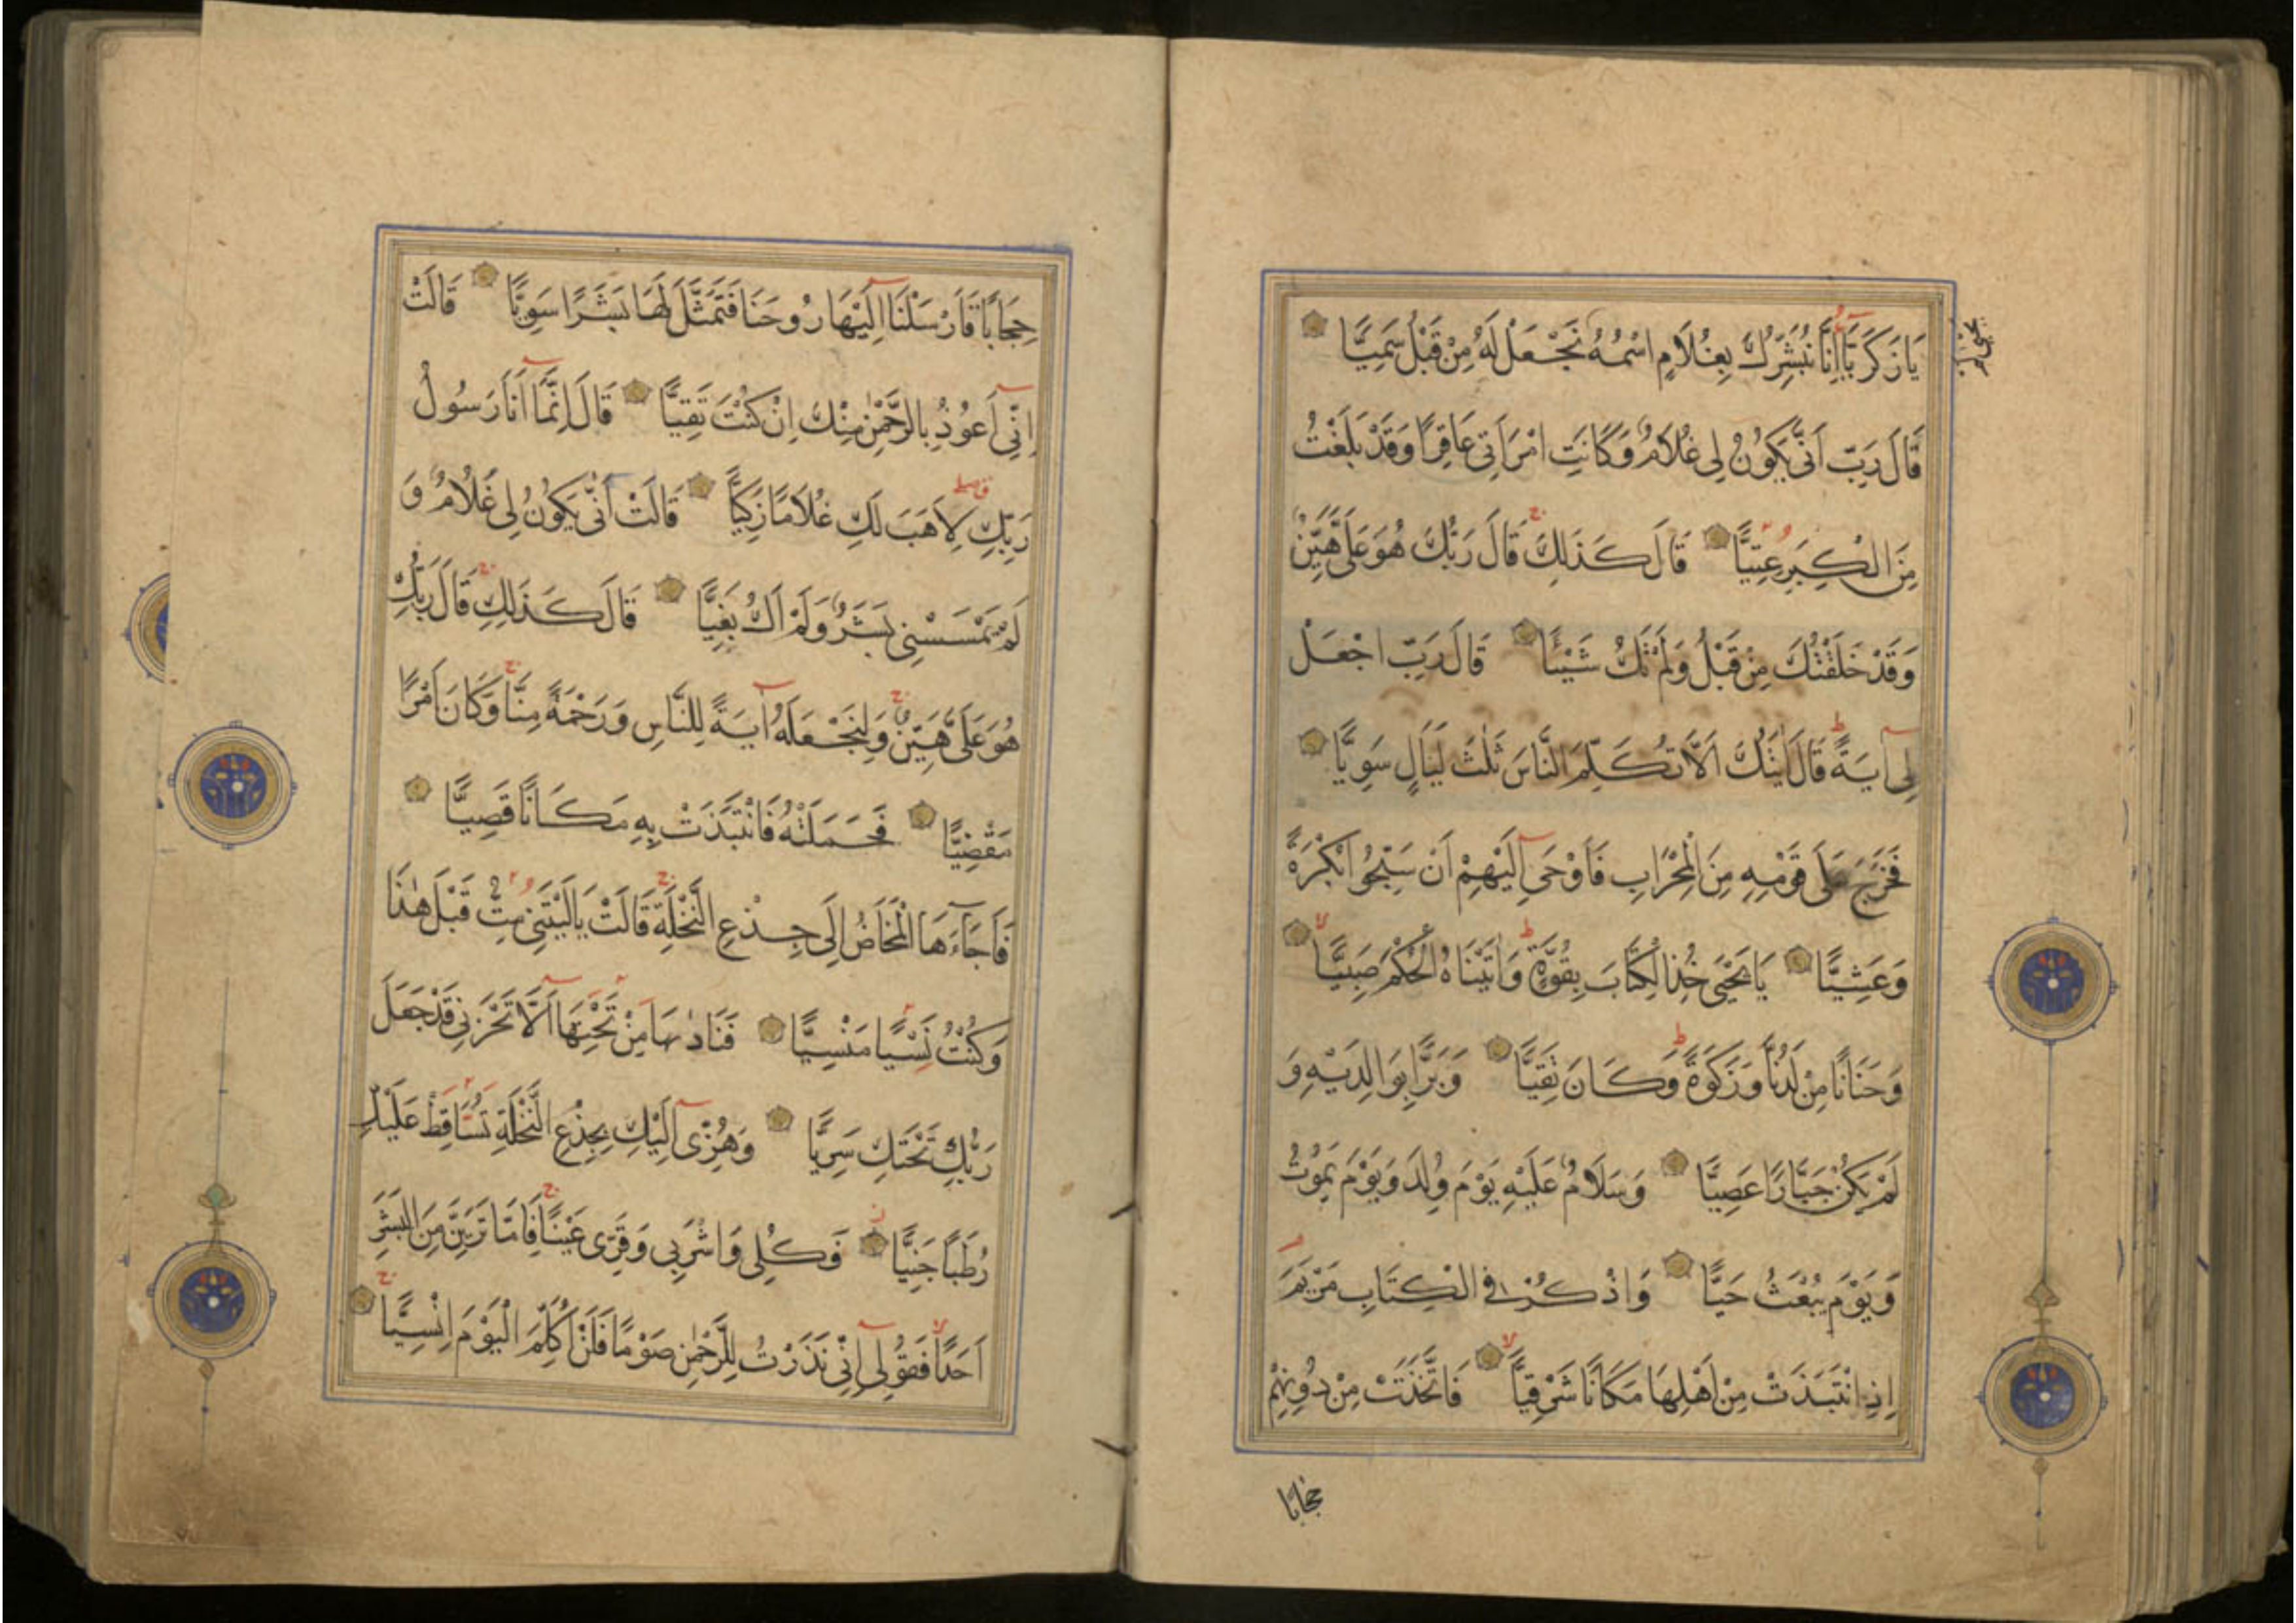 يَا زَكَرِيَّا إِنَّا نُبَشِّرُكَ بِغُلَامٍ اسْمُهُ نَجْعَلْ لَهُ مِنْ قَبْلُ سَمِيًّا
يحيى لم
قَالَ رَبِّ اَنّٰى يَكُونُ لِى غُلَامٌ وَكَانَتِ امْرَاَتِى عَاقِرًا وَقَدْ بَلَغْتُ
مِنَ الْكِبَرِ عِتِيًّا قَالَ كَذَلِكَ قَالَ رَبُّكَ هُوَ عَلَىَّ هَيِّنٌ
وَقَدْ خَلَقْتُكَ مِنْ قَبْلُ وَلَمْ تَكُ شَيْئًا قَالَ رَبِّ اجْعَلْ
لِى آيَةً قَالَ اٰيَتُكَ اَلَّا تُكَلِّمَ النَّاسَ ثَلٰثَ لَيَالٍ سَوِيًّا
فَخَرَجَ عَلَى قَوْمِهِ مِنَ الْمِحْرَابِ فَاَوْحَى اِلَيْهِمْ اَنْ سَبِّحُوا بُكْرَةً
وَعَشِيًّا يَا يَحْيَى خُذِ الْكِتَابَ بِقُوَّةٍ وَاٰتَيْنَاهُ الْحُكْمَ صَبِيًّا
وَحَنَانًا مِنْ لَدُنَّا وَزَكَوةً وَكَانَ تَقِيًّا وَبَرًّا بِوَالِدَيْهِ وَ
لَمْ يَكُنْ جَبَّارًا عَصِيًّا وَسَلَامٌ عَلَيْهِ يَوْمَ وُلِدَ وَيَوْمَ يَمُوتُ
وَيَوْمَ يُبْعَثُ حَيًّا وَاذْكُرْ فِى الْكِتَابِ مَرْيَمَ
اِذِ انْتَبَذَتْ مِنْ اَهْلِهَا مَكَانًا شَرْقِيًّا فَاتَّخَذَتْ مِنْ دُونِهِمْ
حجابا
حِجَابًا فَاَرْسَلْنَا اِلَيْهَا رُوحَنَا فَتَمَثَّلَ لَهَا بَشَرًا سَوِيًّا قَالَتْ
اِنِّى اَعُوذُ بِالرَّحْمٰنِ مِنْكَ اِنْ كُنْتَ تَقِيًّا قَالَ اِنَّمَا اَنَا رَسُولُ
رَبِّكِ لِاَهَبَ لَكِ غُلَامًا زَكِيًّا قَالَتْ اَنّٰى يَكُونُ لِى غُلَامٌ وَ
لَمْ يَمْسَسْنِى بَشَرٌ وَلَمْ اَكُ بَغِيًّا قَالَ كَذَلِكِ قَالَ رَبُّكِ
هُوَ عَلَىَّ هَيِّنٌ وَلِنَجْعَلَهُ آيَةً لِلنَّاسِ وَرَحْمَةً مِنَّا وَكَانَ اَمْرًا
مَقْضِيًّا فَحَمَلَتْهُ فَانْتَبَذَتْ بِهِ مَكَانًا قَصِيًّا
فَاَجَاءَهَا الْمَخَاضُ اِلَى جِذْعِ النَّخْلَةِ قَالَتْ يَالَيْتَنِى مِتُّ قَبْلَ هٰذَا
وَكُنْتُ نَسْيًا مَنْسِيًّا فَنَادٰىهَا مِنْ تَحْتِهَا اَلَّا تَحْزَنِى قَدْ جَعَلَ
رَبُّكِ تَحْتَكِ سَرِيًّا وَهُزِّى اِلَيْكِ بِجِذْعِ النَّخْلَةِ تُسَاقِطْ عَلَيْكِ
رُطَبًا جَنِيًّا فَكُلِى وَاشْرَبِى وَقَرِّى عَيْنًا فَاِمَّا تَرَيِنَّ مِنَ الْبَشَرِ
اَحَدًا فَقُولِى اِنِّى نَذَرْتُ لِلرَّحْمٰنِ صَوْمًا فَلَنْ اُكَلِّمَ الْيَوْمَ اِنْسِيًّا